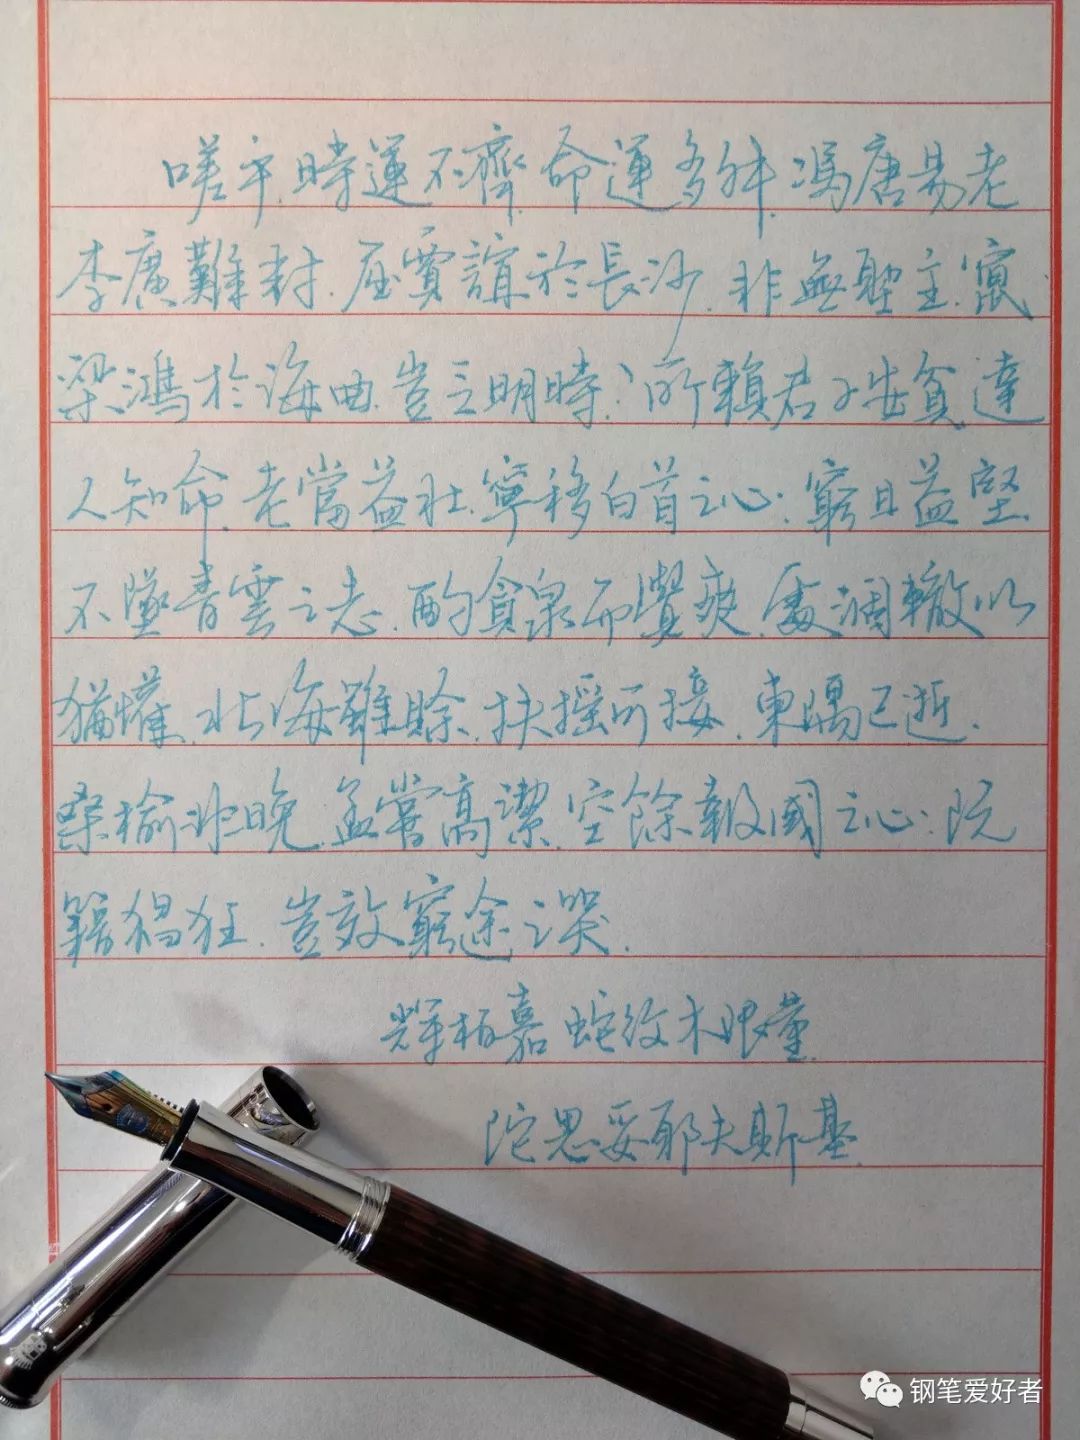 嗟乎,時運不齊,命運多舛,馮唐易老
李廣難封.屈賈誼於長沙,非無聖主.竄
梁鴻於海曲,豈乏明時?所賴君子安貧,達
人知命.老當益壯,寧移白首之心.窮且益堅
不墜青雲之志.酌貪泉而覺爽,處涸轍以
猶懽.北海雖賒,扶搖可接,東隅已逝.
桑榆非晚.孟嘗高潔,空餘報國之心.阮
籍猖狂.豈效窮途之哭.
輝柏嘉 蛇紋木限量
陀思妥耶夫斯基
钢笔爱好者